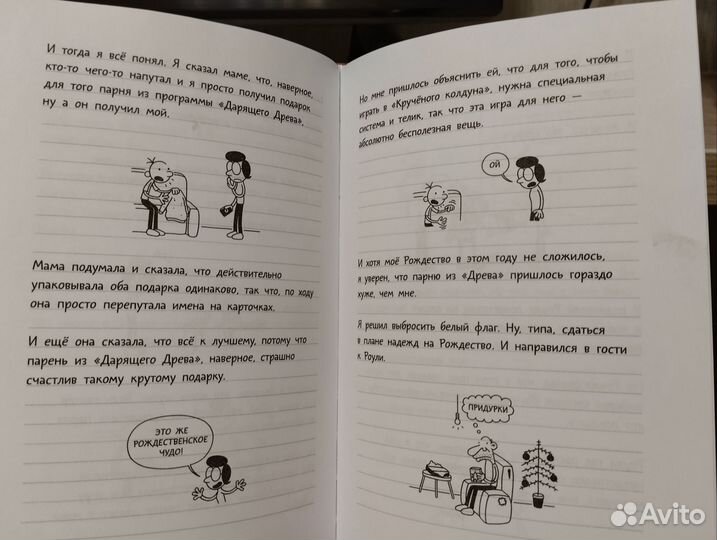 И тогда я всё понял. Я сказал маме, что, наверное,
кто-то чего-то напутал и я просто получил подарок
для того парня из программы «Дарящего Древа»,
ну а он получил мой.
Мама подумала и сказала, что действительно
упаковывала оба подарка одинаково, так что, по ходу
она просто перепутала имена на карточках.
И ещё она сказала, что всё к лучшему, потому что
парень из «Дарящего Древа», наверное, страшно
счастлив такому крутому подарку.
ЭТО ЖЕ
РОЖДЕСТВЕНСКОЕ
ЧУДО!
Но мне пришлось объяснить ей, что для того, чтобы
играть в «Кручёного колдуна», нужна специальная
система и телик, так что эта игра для него —
абсолютно бесполезная вещь.
ОЙ
И хотя моё Рождество в этом году не сложилось,
я уверен, что парню из «Древа» пришлось гораздо
хуже, чем мне.
Я решил выбросить белый флаг. Ну, типа, сдаться
в плане надежд на Рождество. И направился в гости
к Роули.
ПРИДУРКИ
Avito